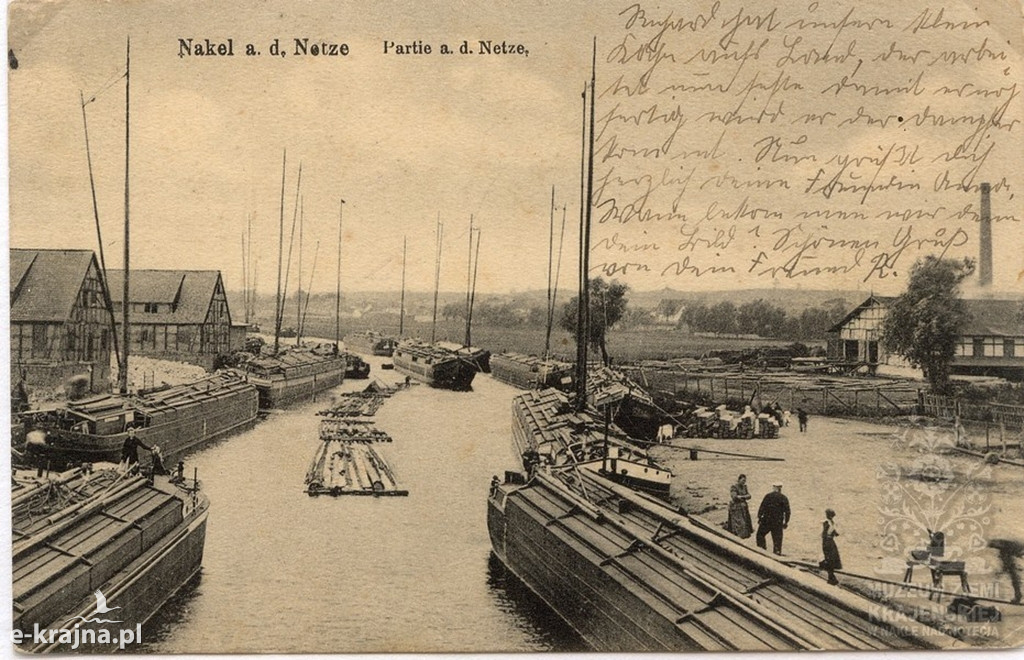 Nakel a. d. Netze
Partie a. d. Netze.
Richard hat unsern klein
Kahn aufs Land, der arbei
tet nun feste damit er
fertig wird er der Dampfer
kommt. Nun grüßt dich
herzlich deine Freundin
Wann bekom men wir denn
dein Bild? Schönen Gruß
von dein Freund R.
MUZEUM ZIEMI
KRAJEŃSKIEJ
W NAKLE NAD NOTECIĄ
e-krajna.pl